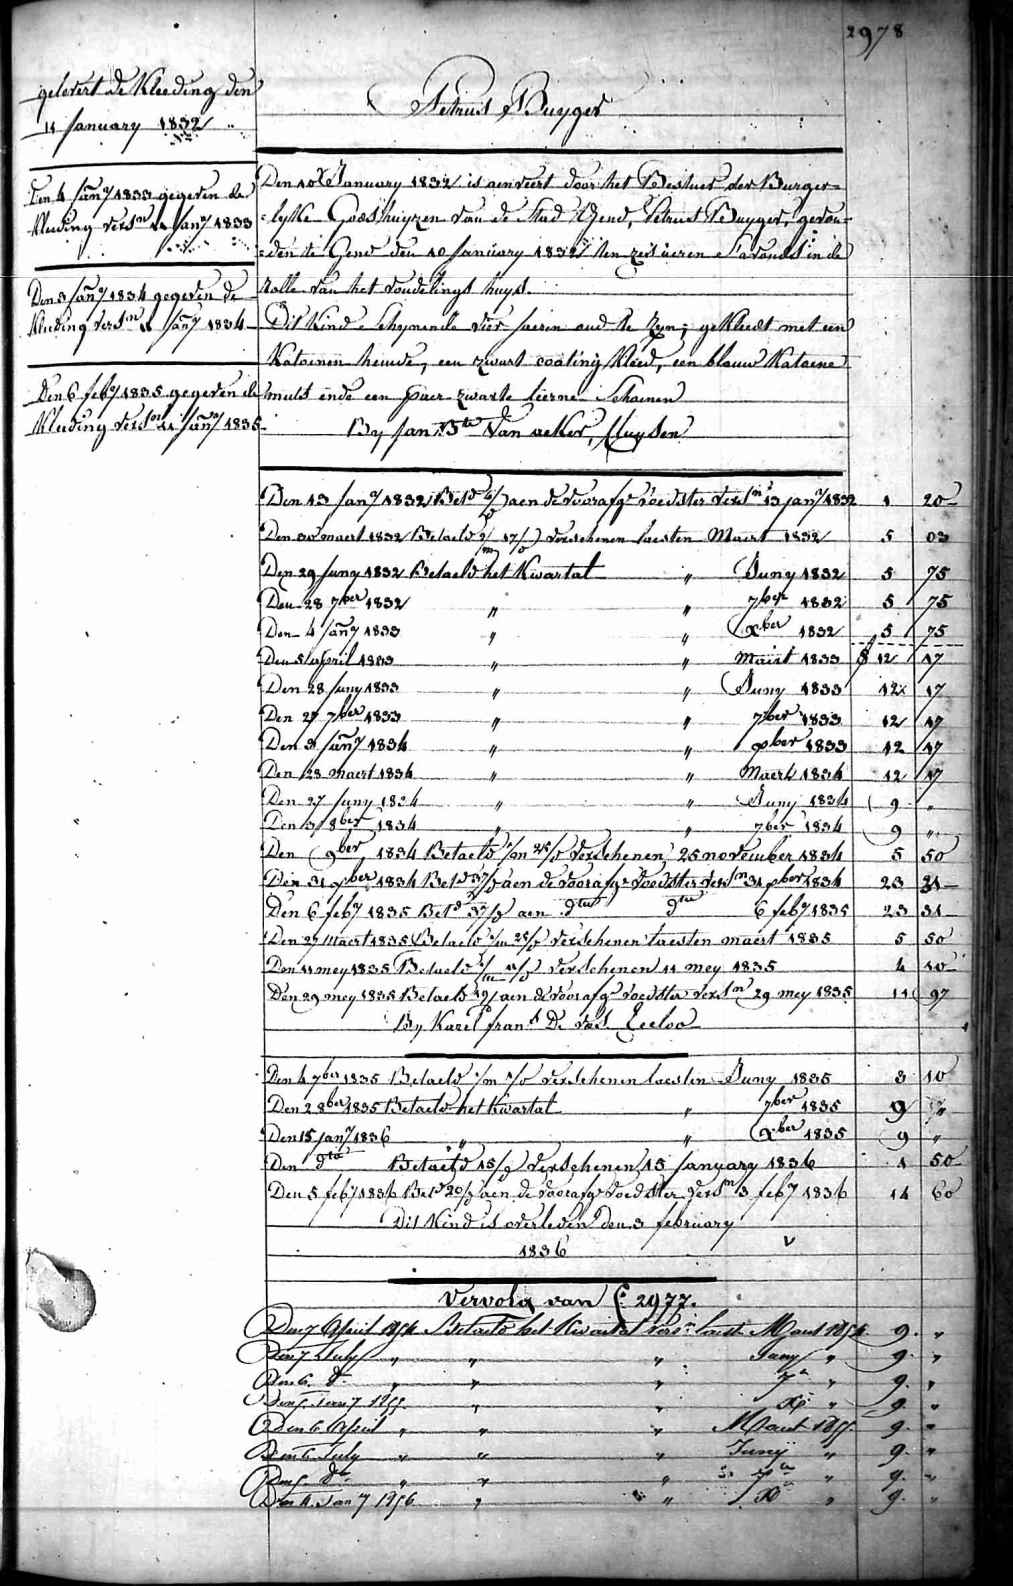 2978
gelevert de Kleeding den
11 January 1832
Den 4 Jan.y 1833 gegeven de
kleeding vers.n 11 Jan.y 1833
Den 3 Jan.y 1834 gegeven de
kleeding vers.n 11 Jan.y 1834
Den 6 feb.y 1835 gegeven de
kleeding vers.n 11 Jan.y 1835
Petrus Buyger
Den 10 January 1832 is aenveert door het Bestuer der Burger=
=lyke Godshuyzen van de Stad Gend, Petrus Buyger, gevon=
=den te Gend den 10 January 1832 ten zes ueren s'avonds in de
rolle van het vondelings huys.
Dit Kind schynende vier Jaeren oud te zyn; gekleedt met een
Katoenen hemde, een zwart coating kleed, een blauw Katoene
muts ende een paer zwarte leerne Schoenen
By Jan B.te Van acker, Cluysen
Den 13 Jan.y 1832 Bet.d aen de voorafg.e voedster vers.n 13 jan.y 1832 1 20
Den 30 maert 1832 Betaeld 17/ verschenen laesten Maert 1832 5 03
Den 29 Juny 1832 Betaeld het Kwartal " Juny 1832 5 75
Den 28 7ber 1832 " " 7ber 1832 5 75
Den 4 Jan.y 1833 " " Xber 1832 5 75
Den 5 April 1833 " " Maert 1833 12 17
Den 28 Juny 1833 " " Juny 1833 12 17
Den 27 7ber 1833 " " 7ber 1833 12 17
Den 3 Jan.y 1834 " " Xber 1833 12 17
Den 28 maert 1834 " " Maert 1834 12 17
Den 27 Juny 1834 " " Juny 1834 9 "
Den 3 8ber 1834 " " 7ber 1834 9 "
Den 9ber 1834 Betaeld verschenen 25 november 1834 5 50
Den 31 Xber 1834 Bet.d 37/ aen de voorafg.e voedster vers.n 31 Xber 1834 23 31
Den 6 feb.y 1835 Bet.d 37/ aen d.to d.to 6 feb.y 1835 23 31
Den 27 Maert 1835 Betaeld verschenen laesten maert 1835 5 50
Den 11 mey 1835 Betaeld verschenen 11 mey 1835 4 10
Den 29 mey 1835 Betaeld 19/ aen de voorafg.e voedster vers.n 29 mey 1835 11 97
By Karel frans De Vos Eecloo
Den 4 7ber 1835 Betaeld verschenen laesten Juny 1835 3 10
Den 2 8ber 1835 Betaeld het Kwartal " 7ber 1835 9 "
Den 15 jan.y 1836 " " Xber 1835 9 "
Den d.to Betaeld 15/ verschenen 15 January 1836 1 50
Den 5 feb.y 1836 Bet.d 20/ aen de voorafg.e voedster vers.n 3 feb.y 1836 14 60
Dit Kind is overleden den 3 february
1836
Vervolg van f.o 2977.
Den 7 April 1854 Betaeld het Kwartal vers.n laest Maert 1854 9. "
Den 7 July " " " Juny " 9. "
Den 6 d.o " " " 7.e " 9. "
Den 5 Jan.y 1855 " " X.e " 9. "
Den 6 April " " " Maert 1855 9. "
Den 6 July " " " Juny " 9. "
Den 5 d.o " " " 7.e " 9. "
Den 4 Jan.y 1856 " " X " 9. "